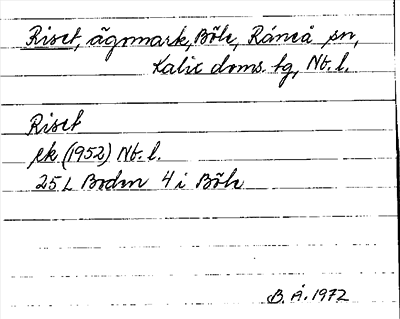 Riset, ägomark, Böle, Råneå sn,
Kalix doms. tg, Nb. l.
Riset
ek (1952) Nb. l.
25 L Boden 4 i Böle
B. Å. 1972